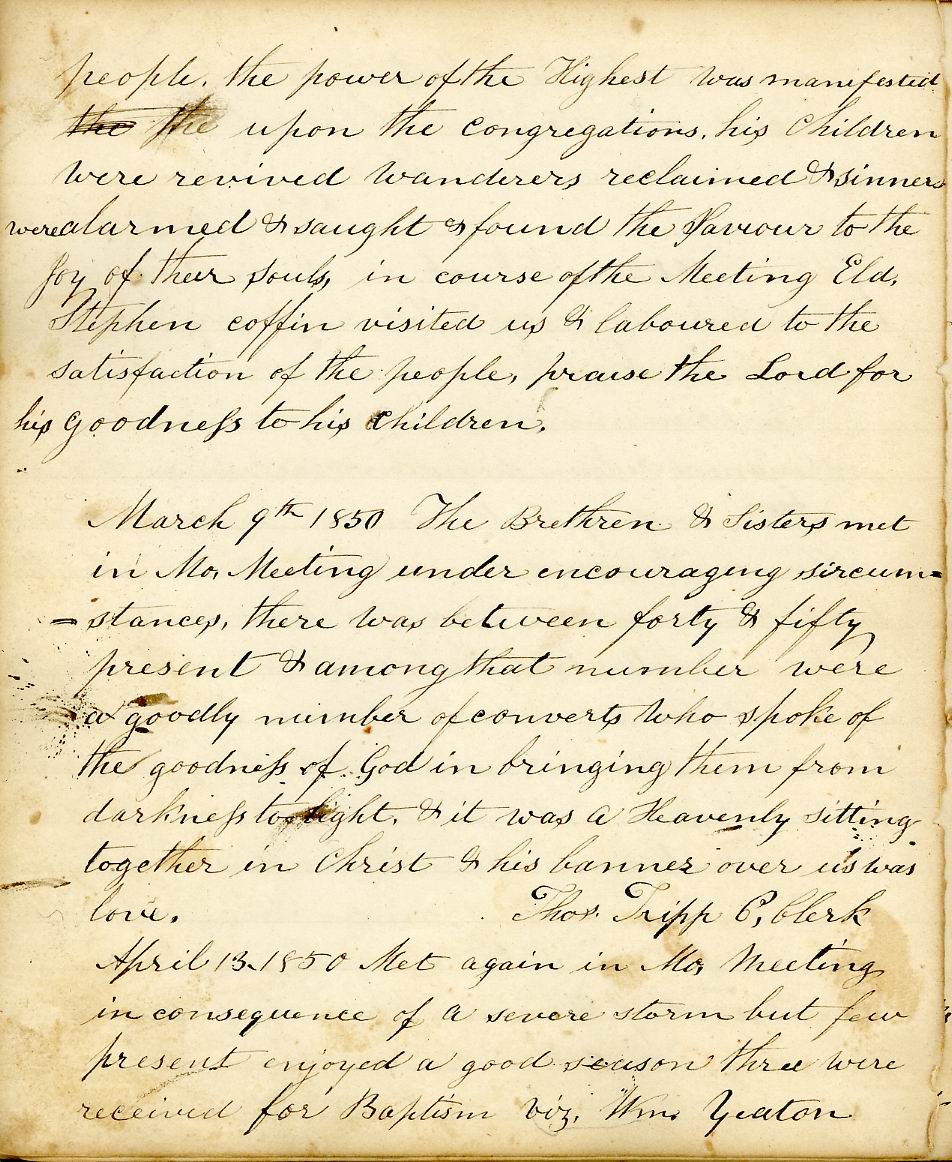 people. the power of the Highest was manifested
the the upon the congregations. his Children
were revived wanderers reclaimed & sinners
were alarmed & saught & found the Saviour to the
Joy of their souls, in course of the Meeting Eld.
Stephen coffin visited us & laboured to the
satisfaction of the people, praise the Lord for
his goodness to his children.
March 9th 1850 The Brethren & Sisters met
in Mo. Meeting under encouraging sircum=
=stances, there was between forty & fifty
present & among that number were
a goodly number of converts who spoke of
the goodness of God in bringing them from
darkness to light. & it was a Heavenly sitting
together in Christ & his banner over us was
love. Thos. Tripp C, Clerk
April 13. 1850 Met again in Mo, Meeting
in consequence of a severe storm but few
present enjoyed a good season three were
received for Baptism viz. Wm. Yeaton